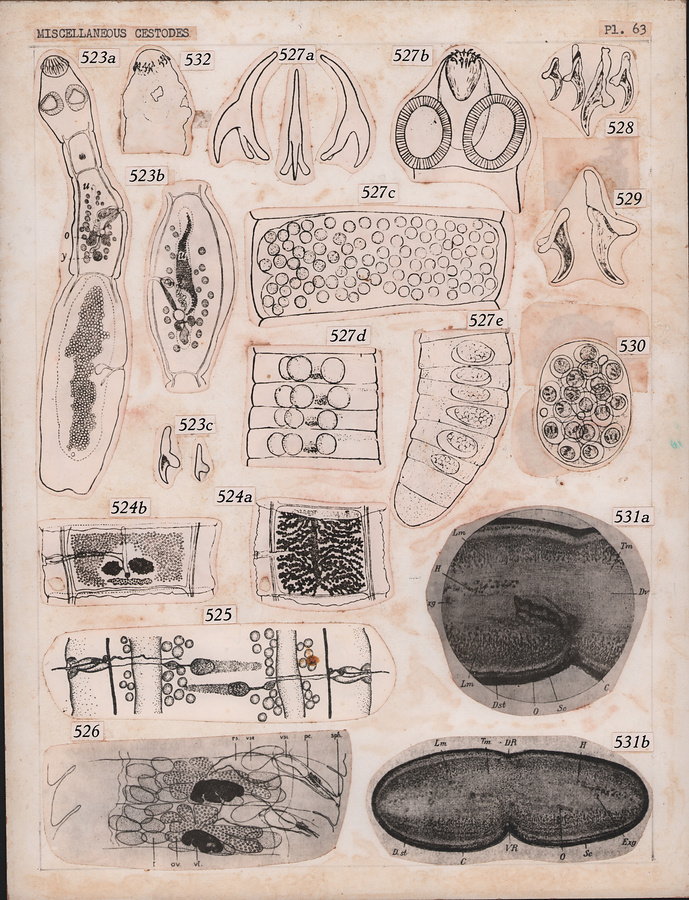 MISCELLANEOUS CESTODES
Pl. 63
523a
532
527a
527b
528
523b
u.
o
y
u
527c
529
527d
527e
530
523c
524b
524a
531a
Lm
Tm
H
Dv
Lm
Dst
O
Sc
C
525
526
vse
pc.
ov
vt.
531b
Lm
Tm
DR
H
D.st
C
VR
O
Sc
Exg